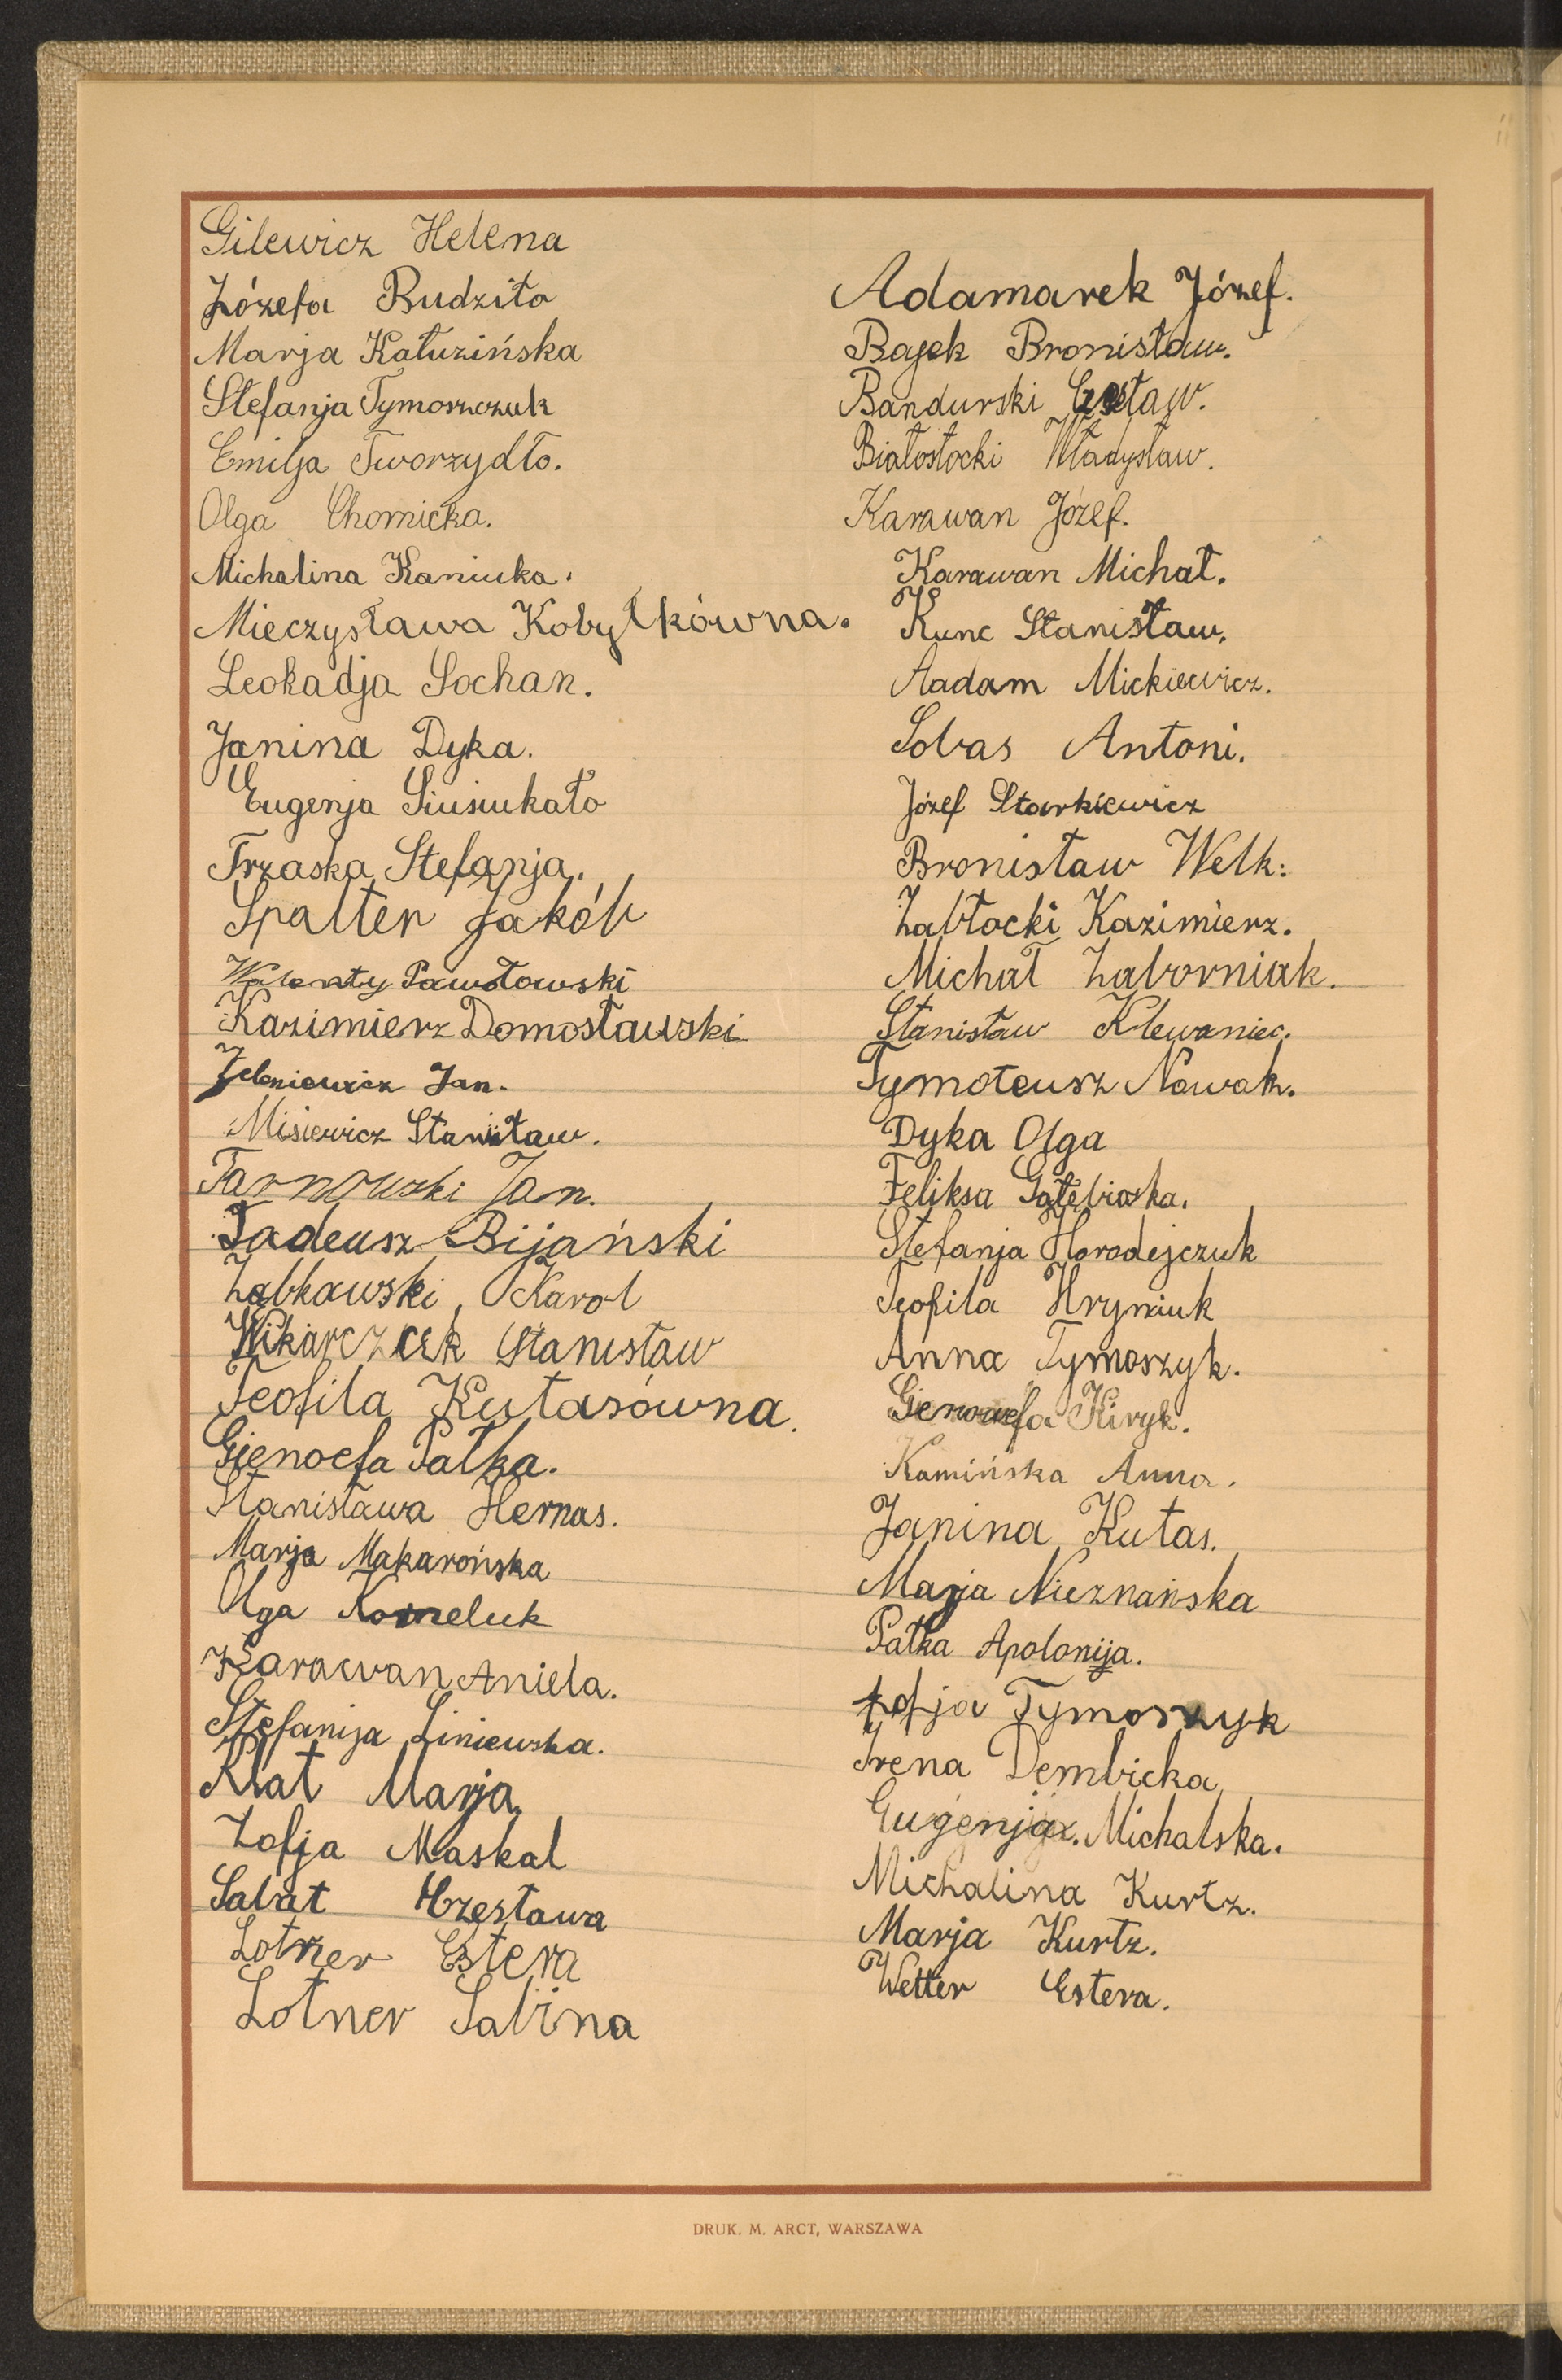 Gilewicz Helena
Józefa Rudzito
Marja Kałuzińska
Stefanja Tymoszczuk
Emilja Tworzydło.
Olga Chomicka.
Michalina Kaniuka.
Mieczysława Kobyłkówna.
Leokadja Sochan.
Janina Dyka.
Eugenja Siusiukało
Trzaska Stefanja.
Spalter Jakób
Walenty Pawołowski
Kazimierz Domosławski
Zeleniewicz Jan.
Misiewicz Stanisław.
Tarnowski Jan.
Tadeusz Bijański
Ząbkowski, Karol
Wikarczcek Stanisław
Teofila Kutasówna.
Gienoefa Pałka.
Stanisława Hernas.
Marja Makarońska
Olga Korneluk
Karawan Aniela.
Stefanija Liniewska.
Krat Marja.
Zofja Maskal
Salat Hrzesława
Lotner Estera
Lotner Sabina
Adamarek Józef.
Bajek Bronisław.
Bandurski Czesław.
Białostocki Władysław.
Karawan Józef.
Karawan Michał.
Kunc Stanisław.
Aadam Mickiewicz.
Sobas Antoni.
Józef Starkiewicz
Bronisław Welk:
Zabłocki Kazimierz.
Michał Zaborniak.
Stanisław Klewaniec.
Tymoteusz Nowak.
Dyka Olga
Feliksa Gołębioska.
Stefanja Horodejczuk
Teofila Hryniuk
Anna Tymoszyk.
Genowefa Kiryk.
Kamińska Anna.
Janina Kutas.
Marja Nieznańska
Pałka Apolonija.
Zofja Tymoszyk
Irena Dembicka
Eugenja. Michalska.
Michalina Kurtz.
Marja Kurtz.
Wetter Estera.
DRUK. M. ARCT, WARSZAWA